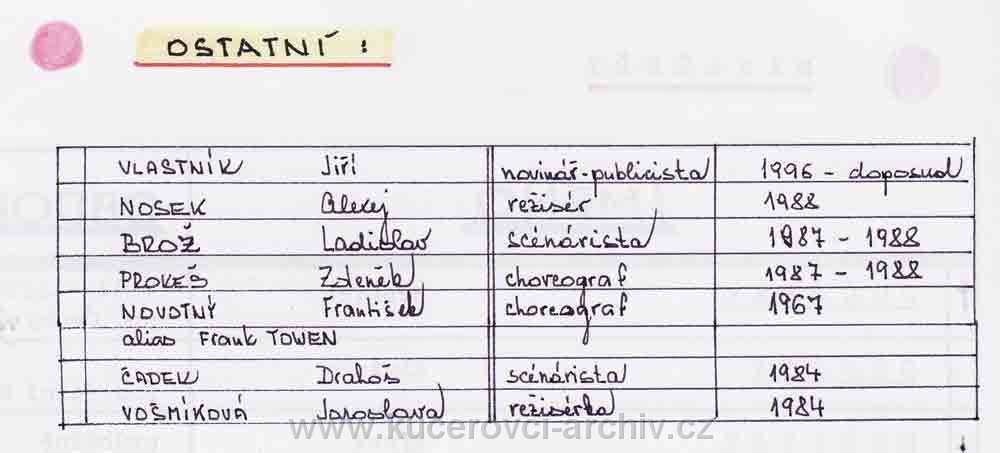 OSTATNÍ :
VLASTNÍK Jiří novinář-publicista 1996 - doposud
NOSEK Alexej režisér 1988
BROŽ Ladislav scénárista 1987 - 1988
PROKEŠ Zdeněk choreograf 1987 - 1988
NOVOTNÝ František choreograf 1967
alias Frank TOWEN
ČADEK Drahoš scénárista 1984
VOŠMÍKOVÁ Jaroslava režisérka 1984
www.kucerovci-archiv.cz